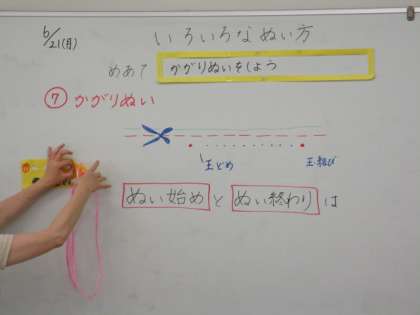 6/21(月) いろいろなぬい方
めあて かがりぬいをしよう
⑦ かがりぬい
玉どめ 玉結び
ぬい始め と ぬい終わり は